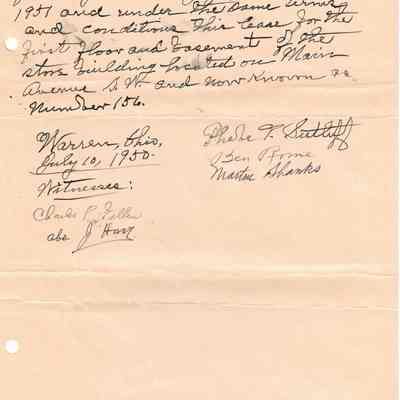 1951 and under the same terms
and conditions this lease for the
first floor and basement of the
store building located on Main
Avenue S.W. and now known as
Number 156.
Warren, Ohio,
July 10, 1950.
Witnesses:
Phebe T. Sutliff
Ben Rome
Martin Shanks
Charles P.
abe J